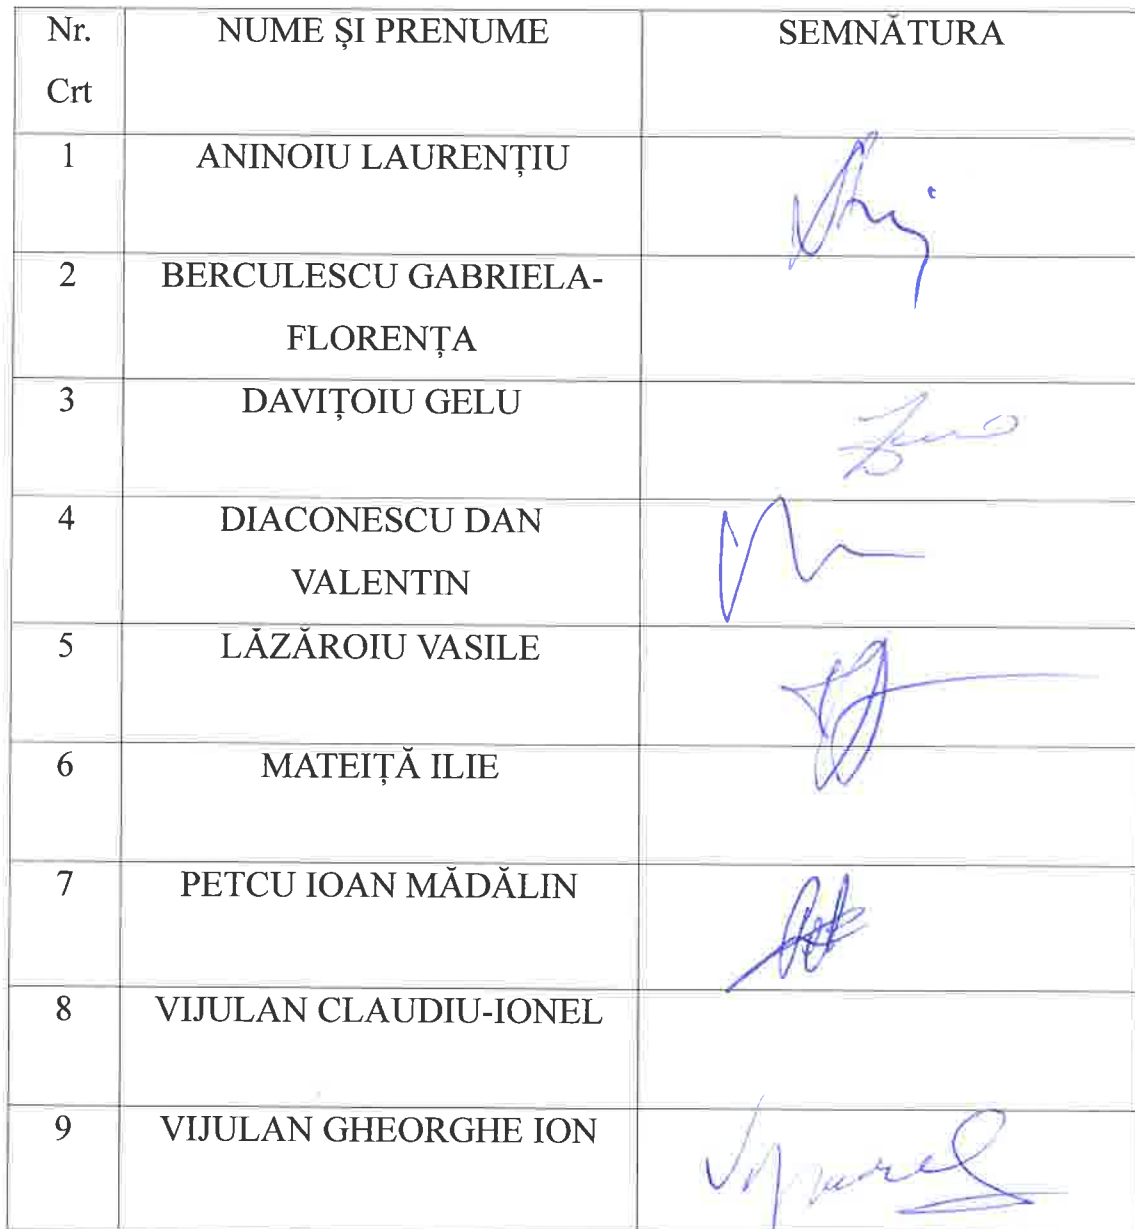 Nr. NUME ȘI PRENUME SEMNĂTURA
Crt
1 ANINOIU LAURENȚIU
2 BERCULESCU GABRIELA-
FLORENȚA
3 DAVIȚOIU GELU
4 DIACONESCU DAN
VALENTIN
5 LĂZĂROIU VASILE
6 MATEIȚĂ ILIE
7 PETCU IOAN MĂDĂLIN
8 VIJULAN CLAUDIU-IONEL
9 VIJULAN GHEORGHE ION